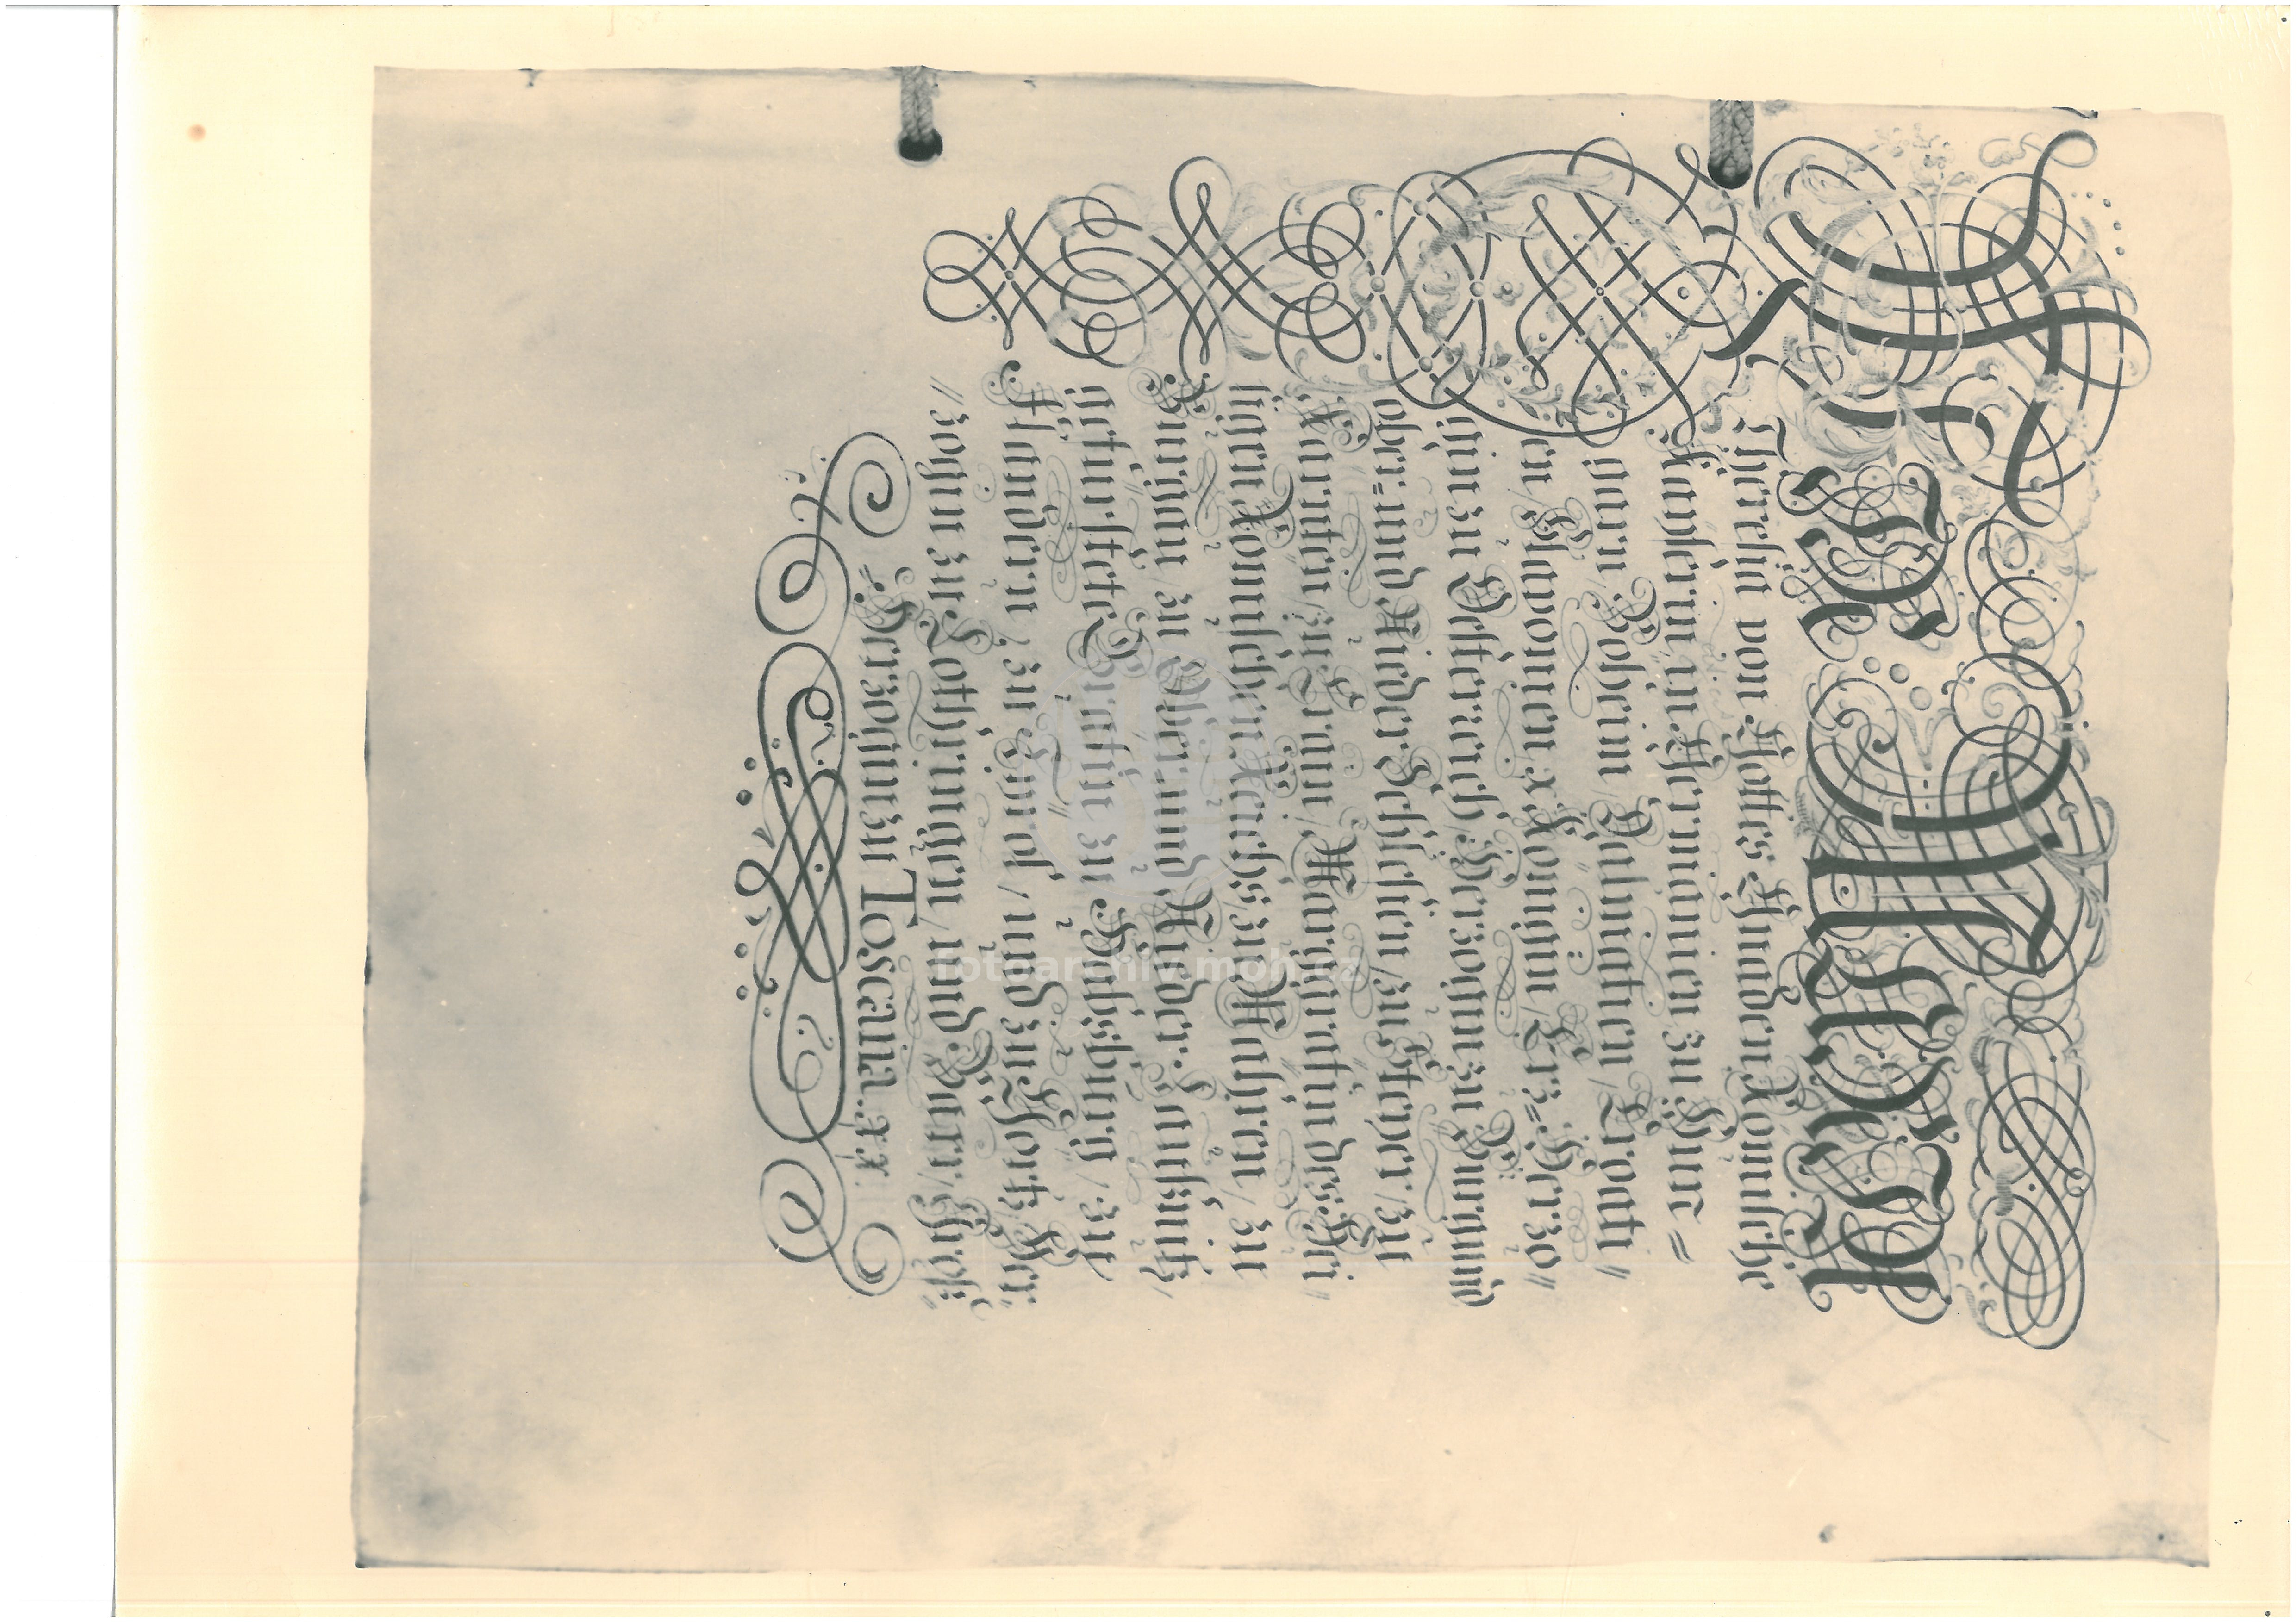 Wir MARIA
Theresia von Gottes Gnaden Römische
Kayserin in Germanien zu Hun=
garn, Böheim, Dalmatien, Croati=
en, Sclavonien &c. Königin, Ertz=Hertzo=
gin zu Oesterreich, Hertzogin zu Burgund
ober= und Nider Schlesien, zu Steyer, zu
Kärnten, zu Crain, Marggräfin des Hei=
ligen Römischen Reichs zu Mähren, zu
Burgau, zu Ober= und Nider Laußnitz,
gefürstete Gräfin zu Habsburg, zu
Flandern, zu Tirol, und zu Görtz, Her=
zogin zu Lothringen, und Barr, Groß=
Hertzogin zu Toscana. &c.
fotoarchiv.moh.cz